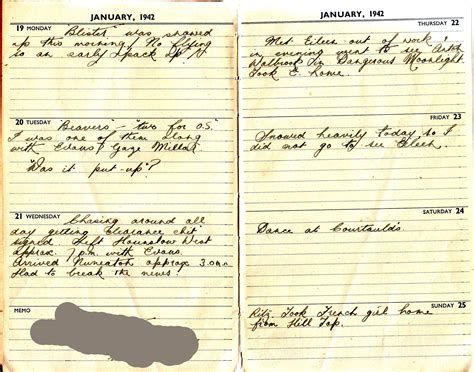 JANUARY, 1942
19 MONDAY "Blister" was signed
up this morning. No flying
so an early pack up
20 TUESDAY "Beavers" – "two for O.S."
I was one of them along
with Evans! Gaze Millar
"Was it put-up"?
21 WEDNESDAY Chasing around all
day getting clearance chit
signed. Left Hounslow West
approx. 7 p.m. with Evans.
Arrived Nuneaton approx. 3.0 a.m.
Had to break the news!
MEMO
JANUARY, 1942
THURSDAY 22
Met Eileen out of work
in evening went to see Anton
Walbrook In Dangerous Moonlight
Took E. home.
FRIDAY 23
Snowed heavily today so I
did not go to see Eileen.
SATURDAY 24
Dance at Courtaulds.
SUNDAY 25
Ritz. Took French girl home
from Hill Top.